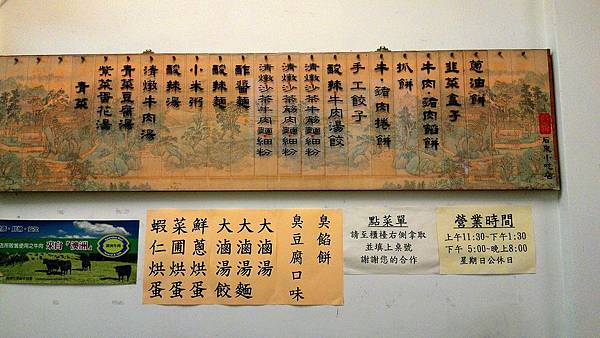 蔥油餅
韭菜盒子
牛肉.豬肉餡餅
抓餅
牛.豬肉捲餅
手工餃子
酸辣牛肉湯餃
清燉沙茶牛肉麵細粉
清燉沙茶牛筋麵細粉
清燉沙茶牛筋肉麵細粉
酢醬麵
酸辣麵
小米粥
酸辣湯
清燉牛肉湯
青菜豆腐湯
紫菜蛋花湯
青菜
來自「澳洲」
臭餡餅
臭豆腐口味
大滷湯
大滷湯麵
大滷湯餃
鮮蔥烘蛋
菜圃烘蛋
蝦仁烘蛋
點菜單
請至櫃檯右側拿取
並填上桌號
謝謝您的合作
營業時間
上午11:30~下午1:30
下午 5:00~晚上8:00
星期日公休日